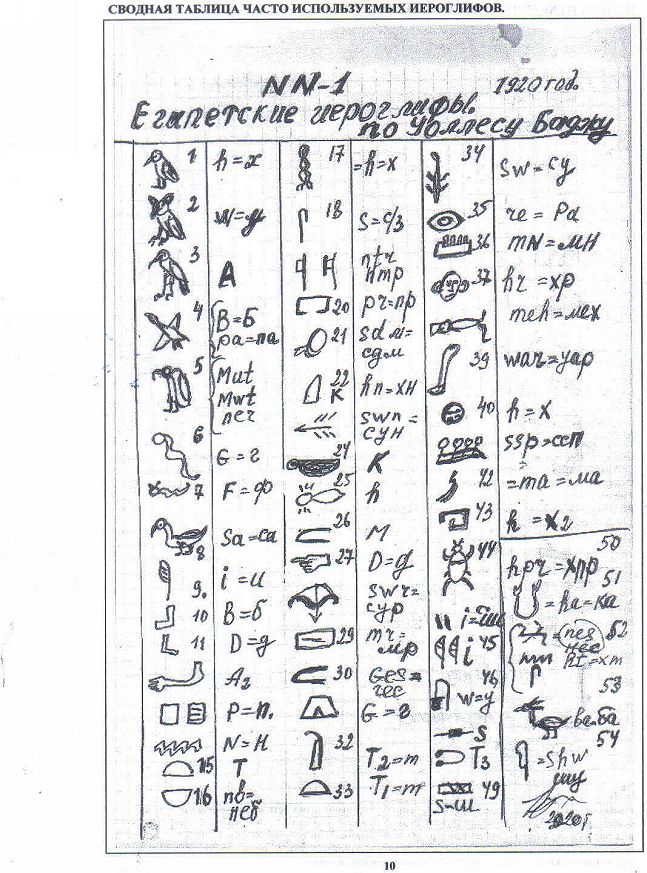 СВОДНАЯ ТАБЛИЦА ЧАСТО ИСПОЛЬЗУЕМЫХ ИЕРОГЛИФОВ.
NN-1 1920 год.
Египетские иероглифы.
по Уоллесу Баджу
1 h=х
2
3 A
4 B=б
pa=па
5 Mut
Mwt
6 G=г
7 F=ф
8 Sa=са
9. i=и
10 B=б
11 D=д
A2
P=п.
N=н
15 T
16 nв=
неб
17 =h=х
18 S=с/з
ntr
нтр
20 pr=пр
21 sdм=
сдм
22 к hn=хн
swn=
сун
24 K
25 h
26 M
27 D=д
swr=
сур
29 mr=
мр
30 Ges=
гес
G=г
32 T2=т
33 T1=т
34 sw=су
35 re=Ра
36 mN=мн
37 hr=хр
meh=мех
39 war=уар
40 h=х
ssp=ссп
42 =ma=ма
43 h=х2
44
45 i
46 w=у
S
T3
49
S=ш
50 hpr=хпр
51 =ka=ка
52 =nes
нес
ht=хт
53 ba=ба
54 =Shw
шу
10